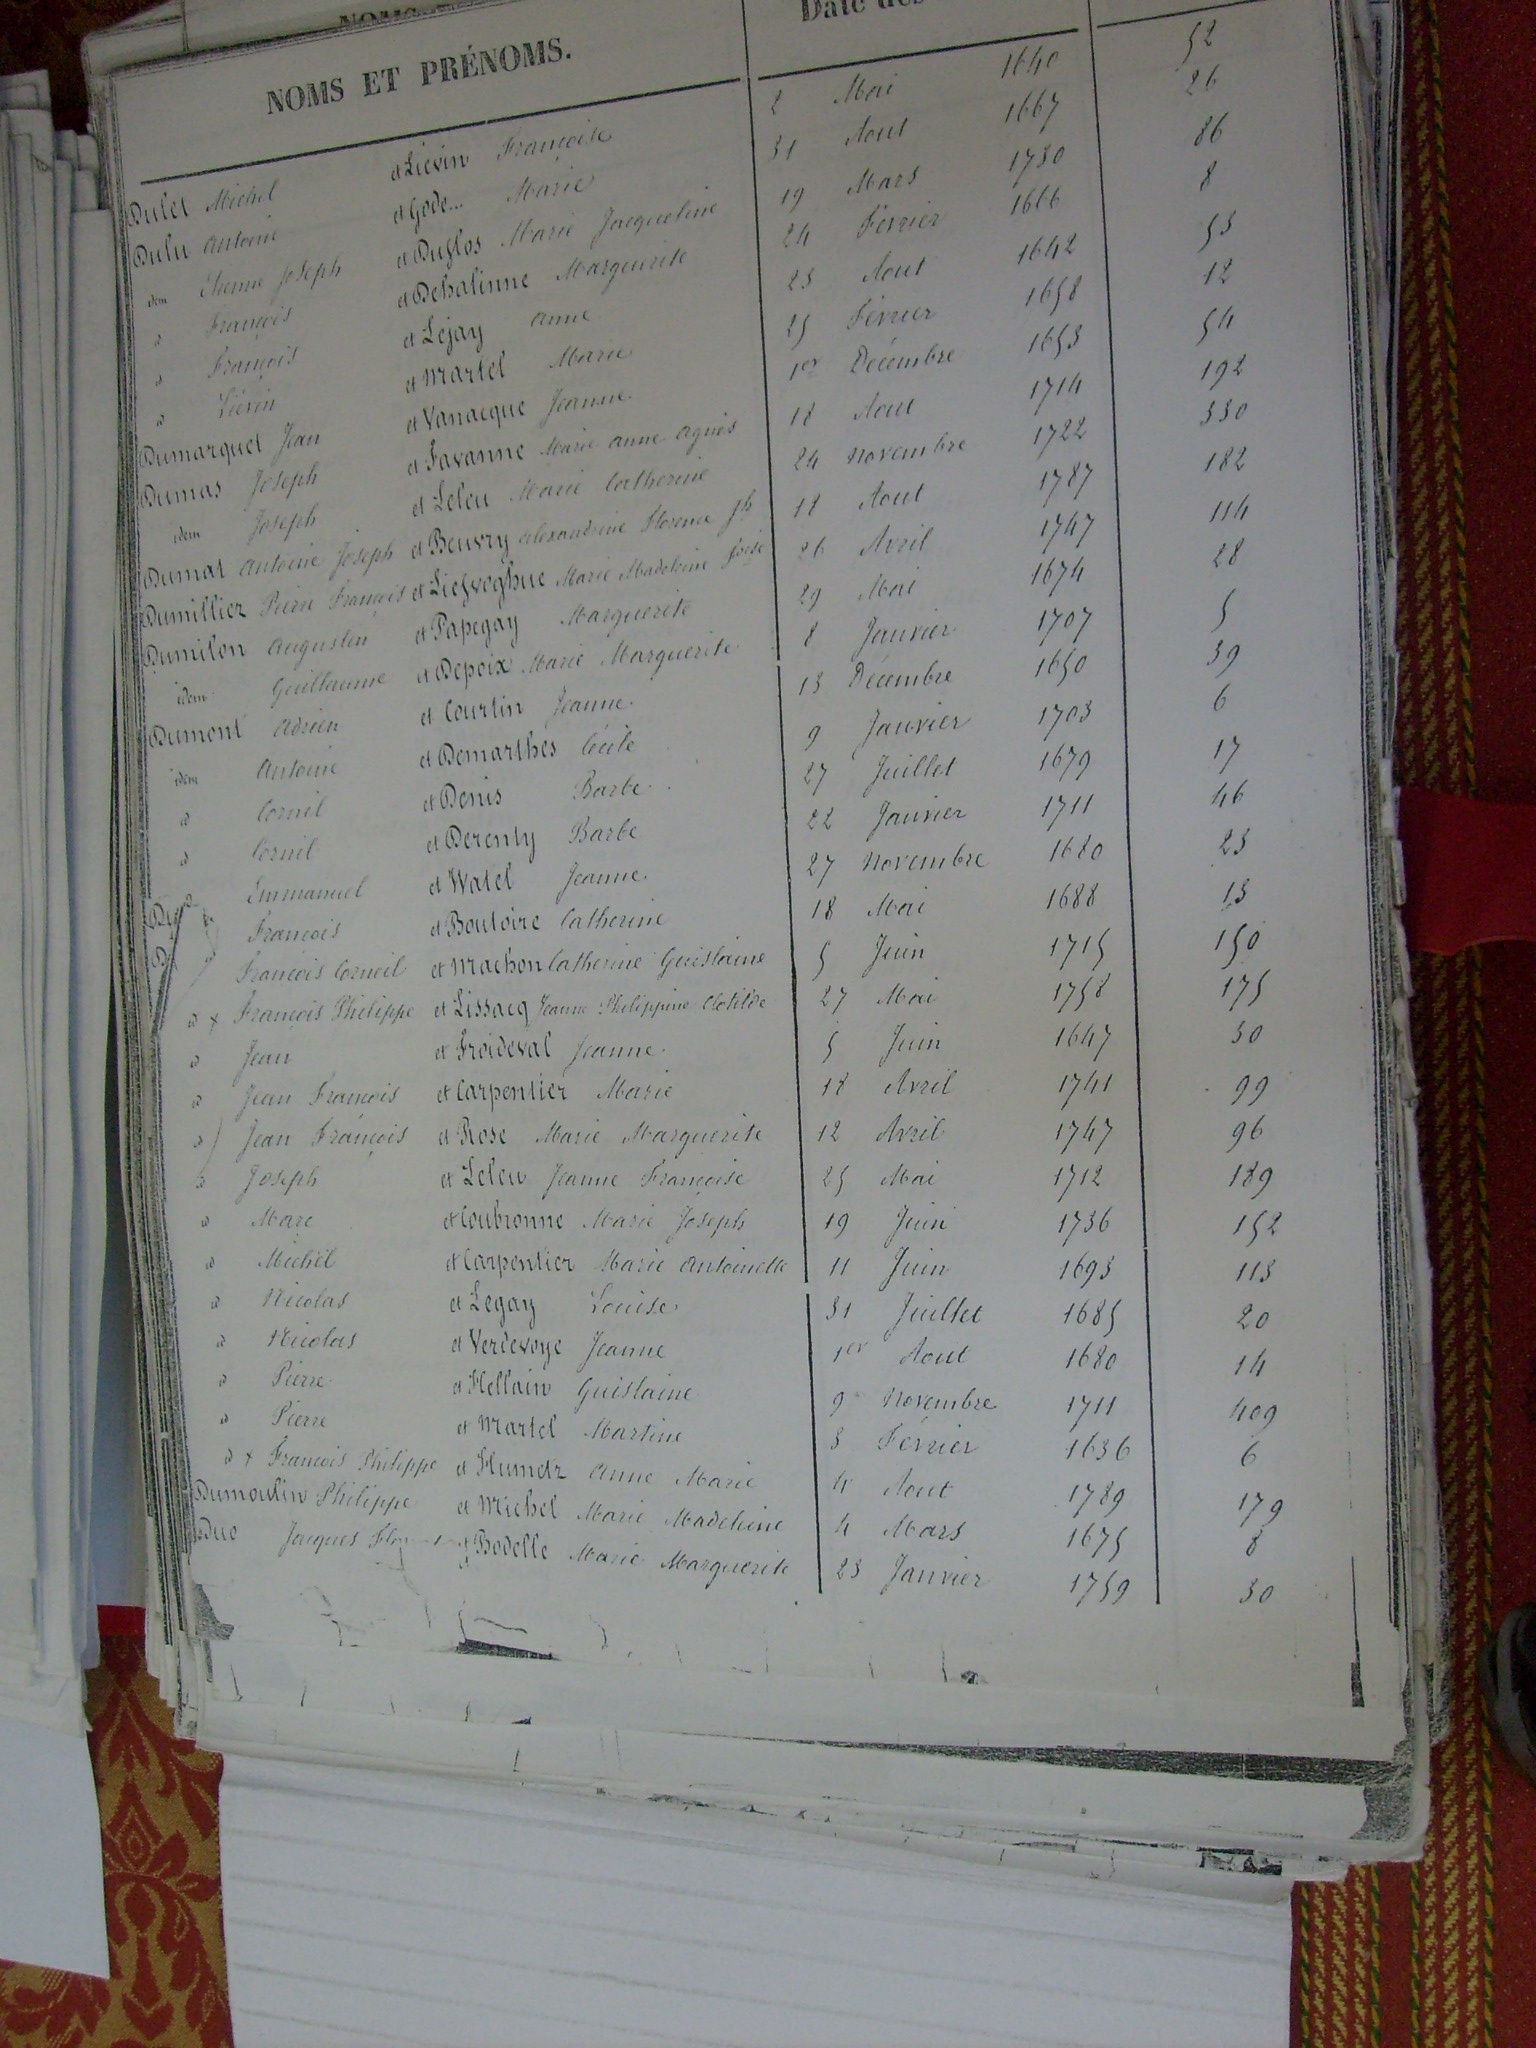 NOMS ET PRÉNOMS. Date des
Dulet Michel et Liévin Françoise 2 Mai 1640 52
Dulu Antoine et Gode... Marie 31 Aout 1667 26
idem Etienne Joseph et Duflos Marie Jacqueline 19 Mars 1730 86
d François et Dehalinne Marguerite 24 Février 1666 8
d François et Lejay Anne 23 Aout 1642 53
d Liévin et Martel Marie 25 Février 1658 12
Dumarquet Jean et Vanacque Jeanne 1er Décembre 1653 54
Dumas Joseph et Favanne Marie Anne Agnès 18 Aout 1714 192
idem Joseph et Leleu Marie Catherine 24 Novembre 1722 330
Dumat Antoine Joseph et Beuvry Alexandrine Florence Jh 18 Aout 1787 182
Dumilliez Pierre François et Liefveghue Marie Madeleine 26 Avril 1747 114
Dumilon Augustin et Papegay Marguerite 29 Mai 1674 28
idem Guillaume et Depoix Marie Marguerite 8 Janvier 1707 5
Dumont Adrien et Courtin Jeanne 13 Décembre 1650 39
idem Antoine et Demarthes Cécile 9 Janvier 1703 6
d Cornil et Denis Barbe 27 Juillet 1679 17
d Cornil et Derenty Barbe 22 Janvier 1711 46
d Emmanuel et Watel Jeanne 27 Novembre 1680 23
François et Boutoire Catherine 18 Mai 1688 13
François Corneil et Machon Catherine Guislaine 5 Juin 1715 150
d x François Philippe et Lissacq Jeanne Philippine Clotilde 27 Mai 1758 175
d Jean et Froideval Jeanne 5 Juin 1647 30
d Jean François et Carpentier Marie 18 Avril 1741 99
d Jean François et Rose Marie Marguerite 12 Avril 1747 96
d Joseph et Leleu Jeanne Françoise 25 Mai 1712 189
d Marc et Coubronne Marie Joseph 19 Juin 1736 152
d Michel et Carpentier Marie Antoinette 11 Juin 1693 113
d Nicolas et Legay Louise 31 Juillet 1685 20
d Nicolas et Verdevoye Jeanne 1er Aout 1680 14
d Pierre et Hellain Guislaine 9 Novembre 1711 409
d Pierre et Martel Martine 3 Février 1636 6
d x François Philippe et Humetz Anne Marie 4 Aout 1789 179
Dumoulin Philippe et Michel Marie Madeleine 4 Mars 1675 8
Duc Jacques et Bodelle Marie Marguerite 23 Janvier 1759 30